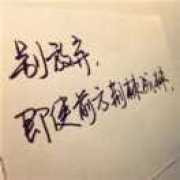 别放弃，
即使前方荆棘成林，